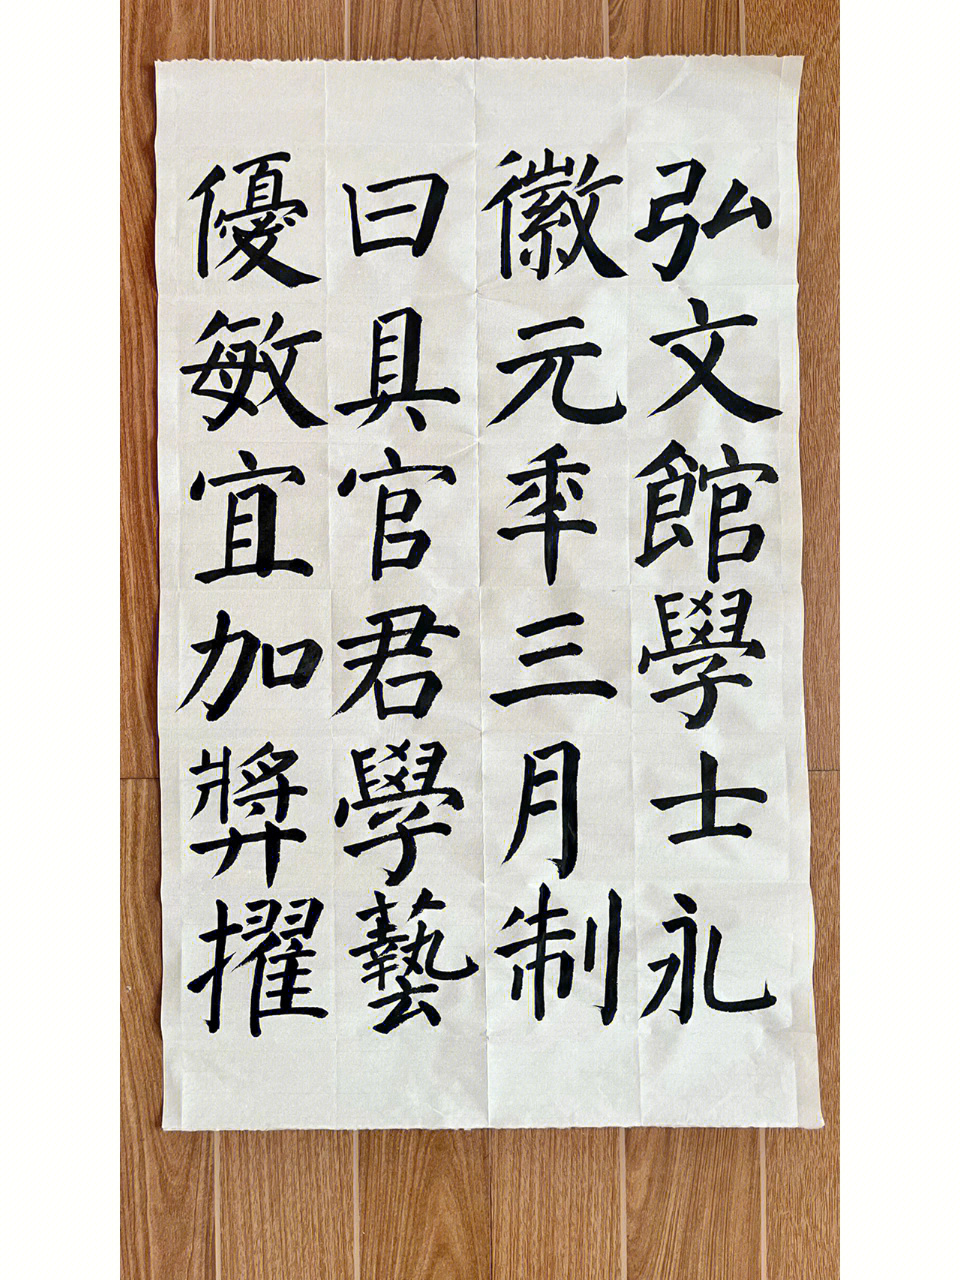 弘文館學士永
徽元年三月制
曰具官君學藝
優敏宜加獎擢